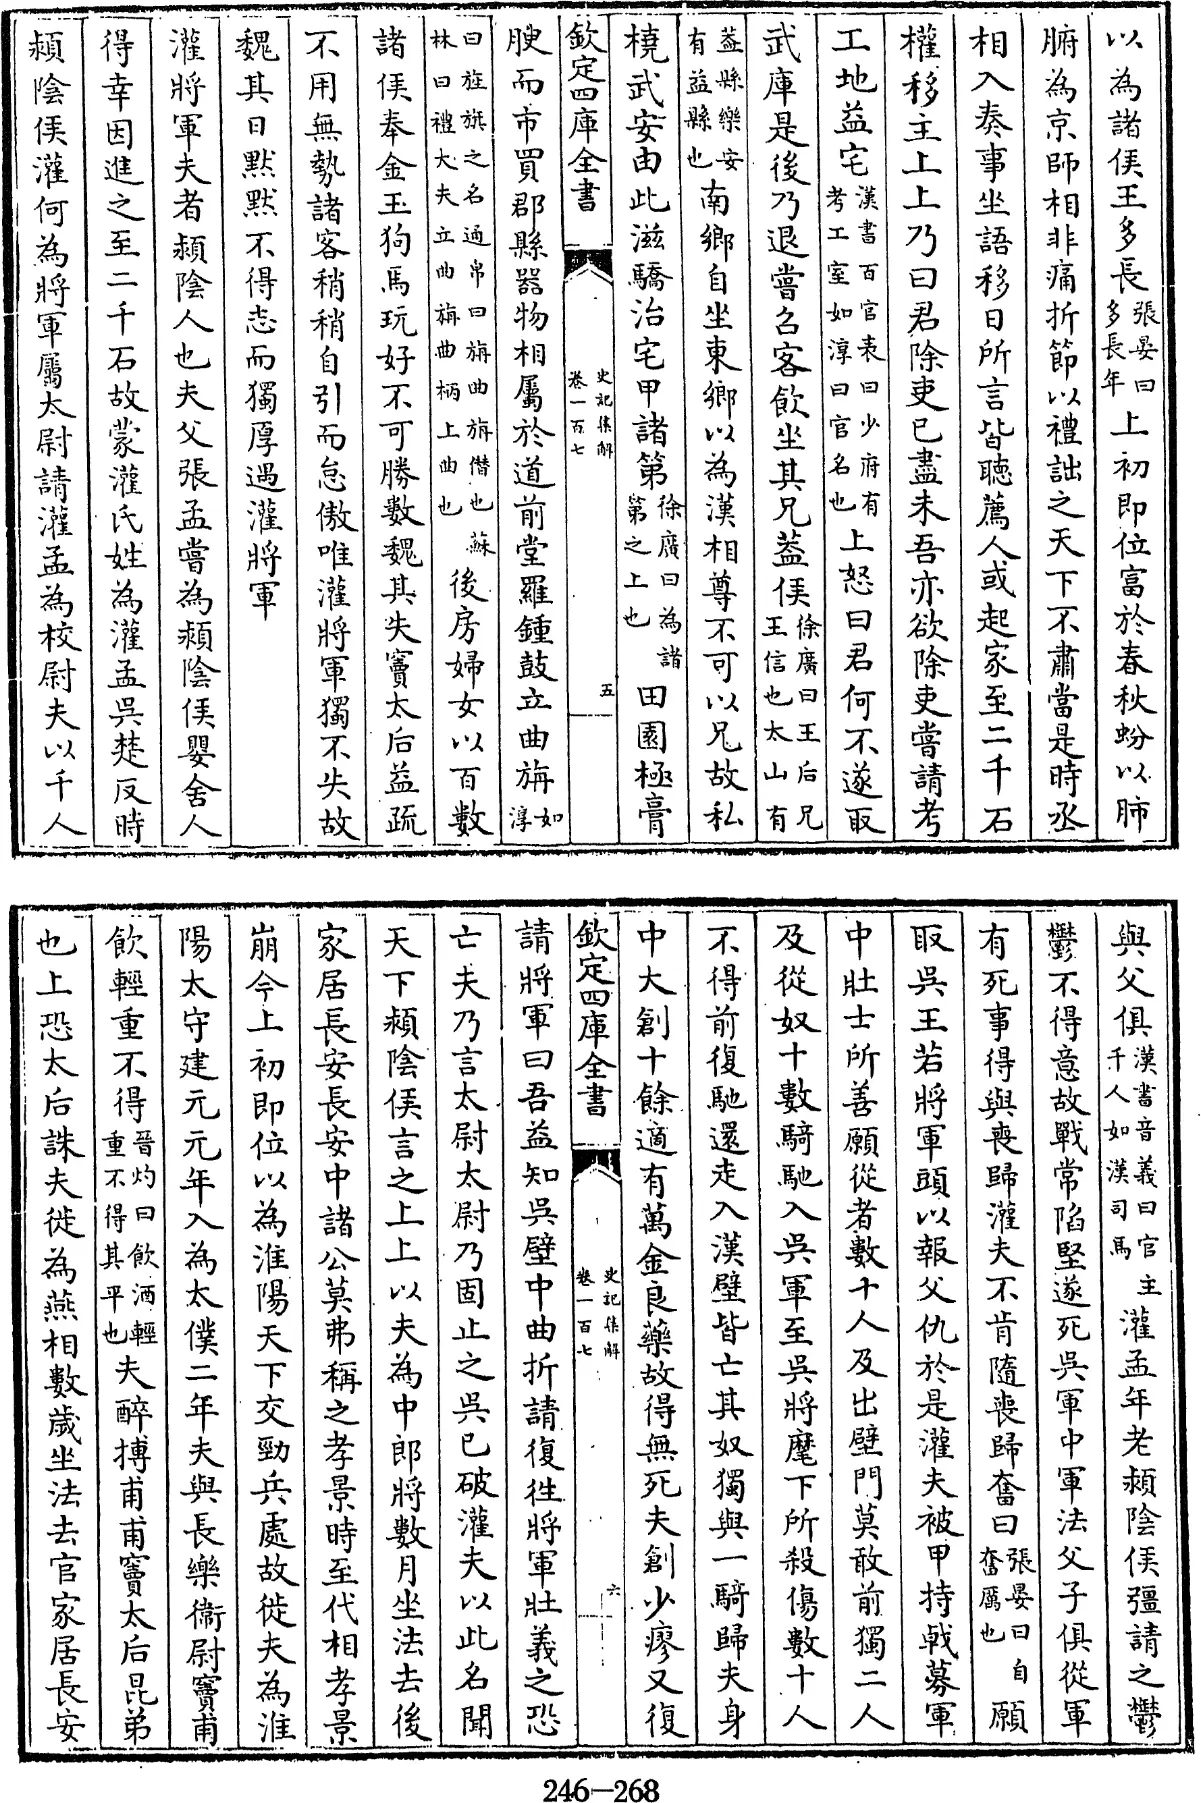 以為諸侯王多長張晏曰多長年上初即位富於春秋蚡以肺
腑為京師相非痛折節以禮詘之天下不肅當是時丞
相入奏事坐語移日所言皆聽薦人或起家至二千石
權移主上上乃曰君除吏已盡未吾亦欲除吏嘗請考
工地益宅漢書百官表曰少府有考工室如淳曰官名也上怒曰君何不遂取
武庫是後乃退嘗召客飲坐其兄蓋侯徐廣曰王后兄王信也太山有
蓋縣樂安有益縣也南鄉自坐東鄉以為漢相尊不可以兄故私
橈武安由此滋驕治宅甲諸第徐廣曰為諸第之上也田園極膏
欽定四庫全書
史記集解
卷一百七
五
腴而市買郡縣器物相屬於道前堂羅鍾鼓立曲旃如淳
曰旌旗之名通帛曰旃曲旃僭也蘇林曰禮大夫立曲旃曲柄上曲也後房婦女以百數
諸侯奉金玉狗馬玩好不可勝數魏其失竇太后益疏
不用無勢諸客稍稍自引而怠傲唯灌將軍獨不失故
魏其日默默不得志而獨厚遇灌將軍
灌將軍夫者潁陰人也夫父張孟嘗為潁陰侯嬰舍人
得幸因進之至二千石故蒙灌氏姓為灌孟吳楚反時
潁陰侯灌何為將軍屬太尉請灌孟為校尉夫以千人
與父俱漢書音義曰官主千人如漢司馬灌孟年老潁陰侯彊請之鬱
鬱不得意故戰常陷堅遂死吳軍中軍法父子俱從軍
有死事得與喪歸灌夫不肯隨喪歸奮曰張晏曰自奮厲也願
取吳王若將軍頭以報父仇於是灌夫被甲持戟募軍
中壯士所善願從者數十人及出壁門莫敢前獨二人
及從奴十數騎馳入吳軍至吳將麾下所殺傷數十人
不得前復馳還走入漢壁皆亡其奴獨與一騎歸夫身
中大創十餘適有萬金良藥故得無死夫創少瘳又復
欽定四庫全書
史記集解
卷一百七
六
請將軍曰吾益知吳壁中曲折請復往將軍壯義之恐
亡夫乃言太尉太尉乃固止之吳已破灌夫以此名聞
天下潁陰侯言之上上以夫為中郎將數月坐法去後
家居長安長安中諸公莫弗稱之孝景時至代相孝景
崩今上初即位以為淮陽天下交勁兵處故徙夫為淮
陽太守建元元年入為太僕二年夫與長樂衛尉竇甫
飲輕重不得晉灼曰飲酒輕重不得其平也夫醉搏甫甫竇太后昆弟
也上恐太后誅夫徙為燕相數歲坐法去官家居長安
246—268